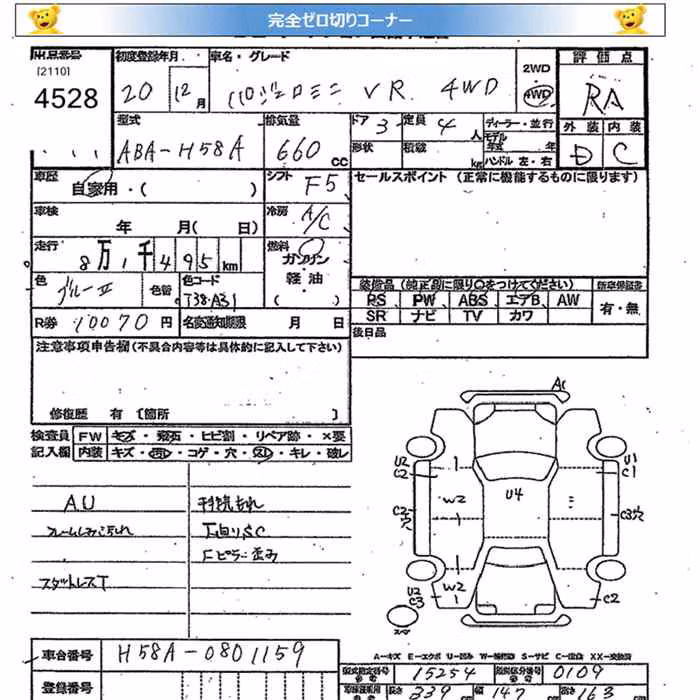 完全ゼロ切りコーナー
出品番号
[2110]
4528
初度登録年月
20 12月
車名・グレード
パジェロミニ VR 4WD
2WD
4WD
評価点
RA
型式
ABA-H58A
排気量
660 cc
ドア 3
定員 4 人
形状
積載 kg
ディーラー・並行
モデル年式 年
ハンドル 左・右
外装 内装
D C
車歴
自家用・( )
シフト F5
セールスポイント (正常に機能するものに限ります)
車検
年 月( 日)
冷房 A/C
走行
8万1千495km
燃料
ガソリン
軽油
( )
色 ブルーII
色替
色コード T38・A31
装備品 (純正品に限り○をつけてください)
新車保証書
PS PW ABS エアB AW
SR ナビ TV カワ
有・無
R券 10070円
名変通知期限 月 日
後日品
注意事項申告欄(不具合内容等は具体的に記入して下さい)
修復歴 有 [箇所 ]
検査員記入欄
FW キズ・飛石・ヒビ割・リペア跡・×要
内装 キズ・汚レ・コゲ・穴・スレ・キレ・破レ
AU
スタットレスT
下回りSC
Fピラー歪み
A1
U2
C2
U1
C1
W2
U4
C2穴
C3穴
W2
U2
C3
C2
スペア
A-キズ E-エクボ U-凹み W-補修跡 S-サビ C-腐食 XX-交換済
車台番号 H58A-0801159
登録番号
型式指定番号 15254
類別区分番号 0109
長さ 339 幅 147 高さ 163